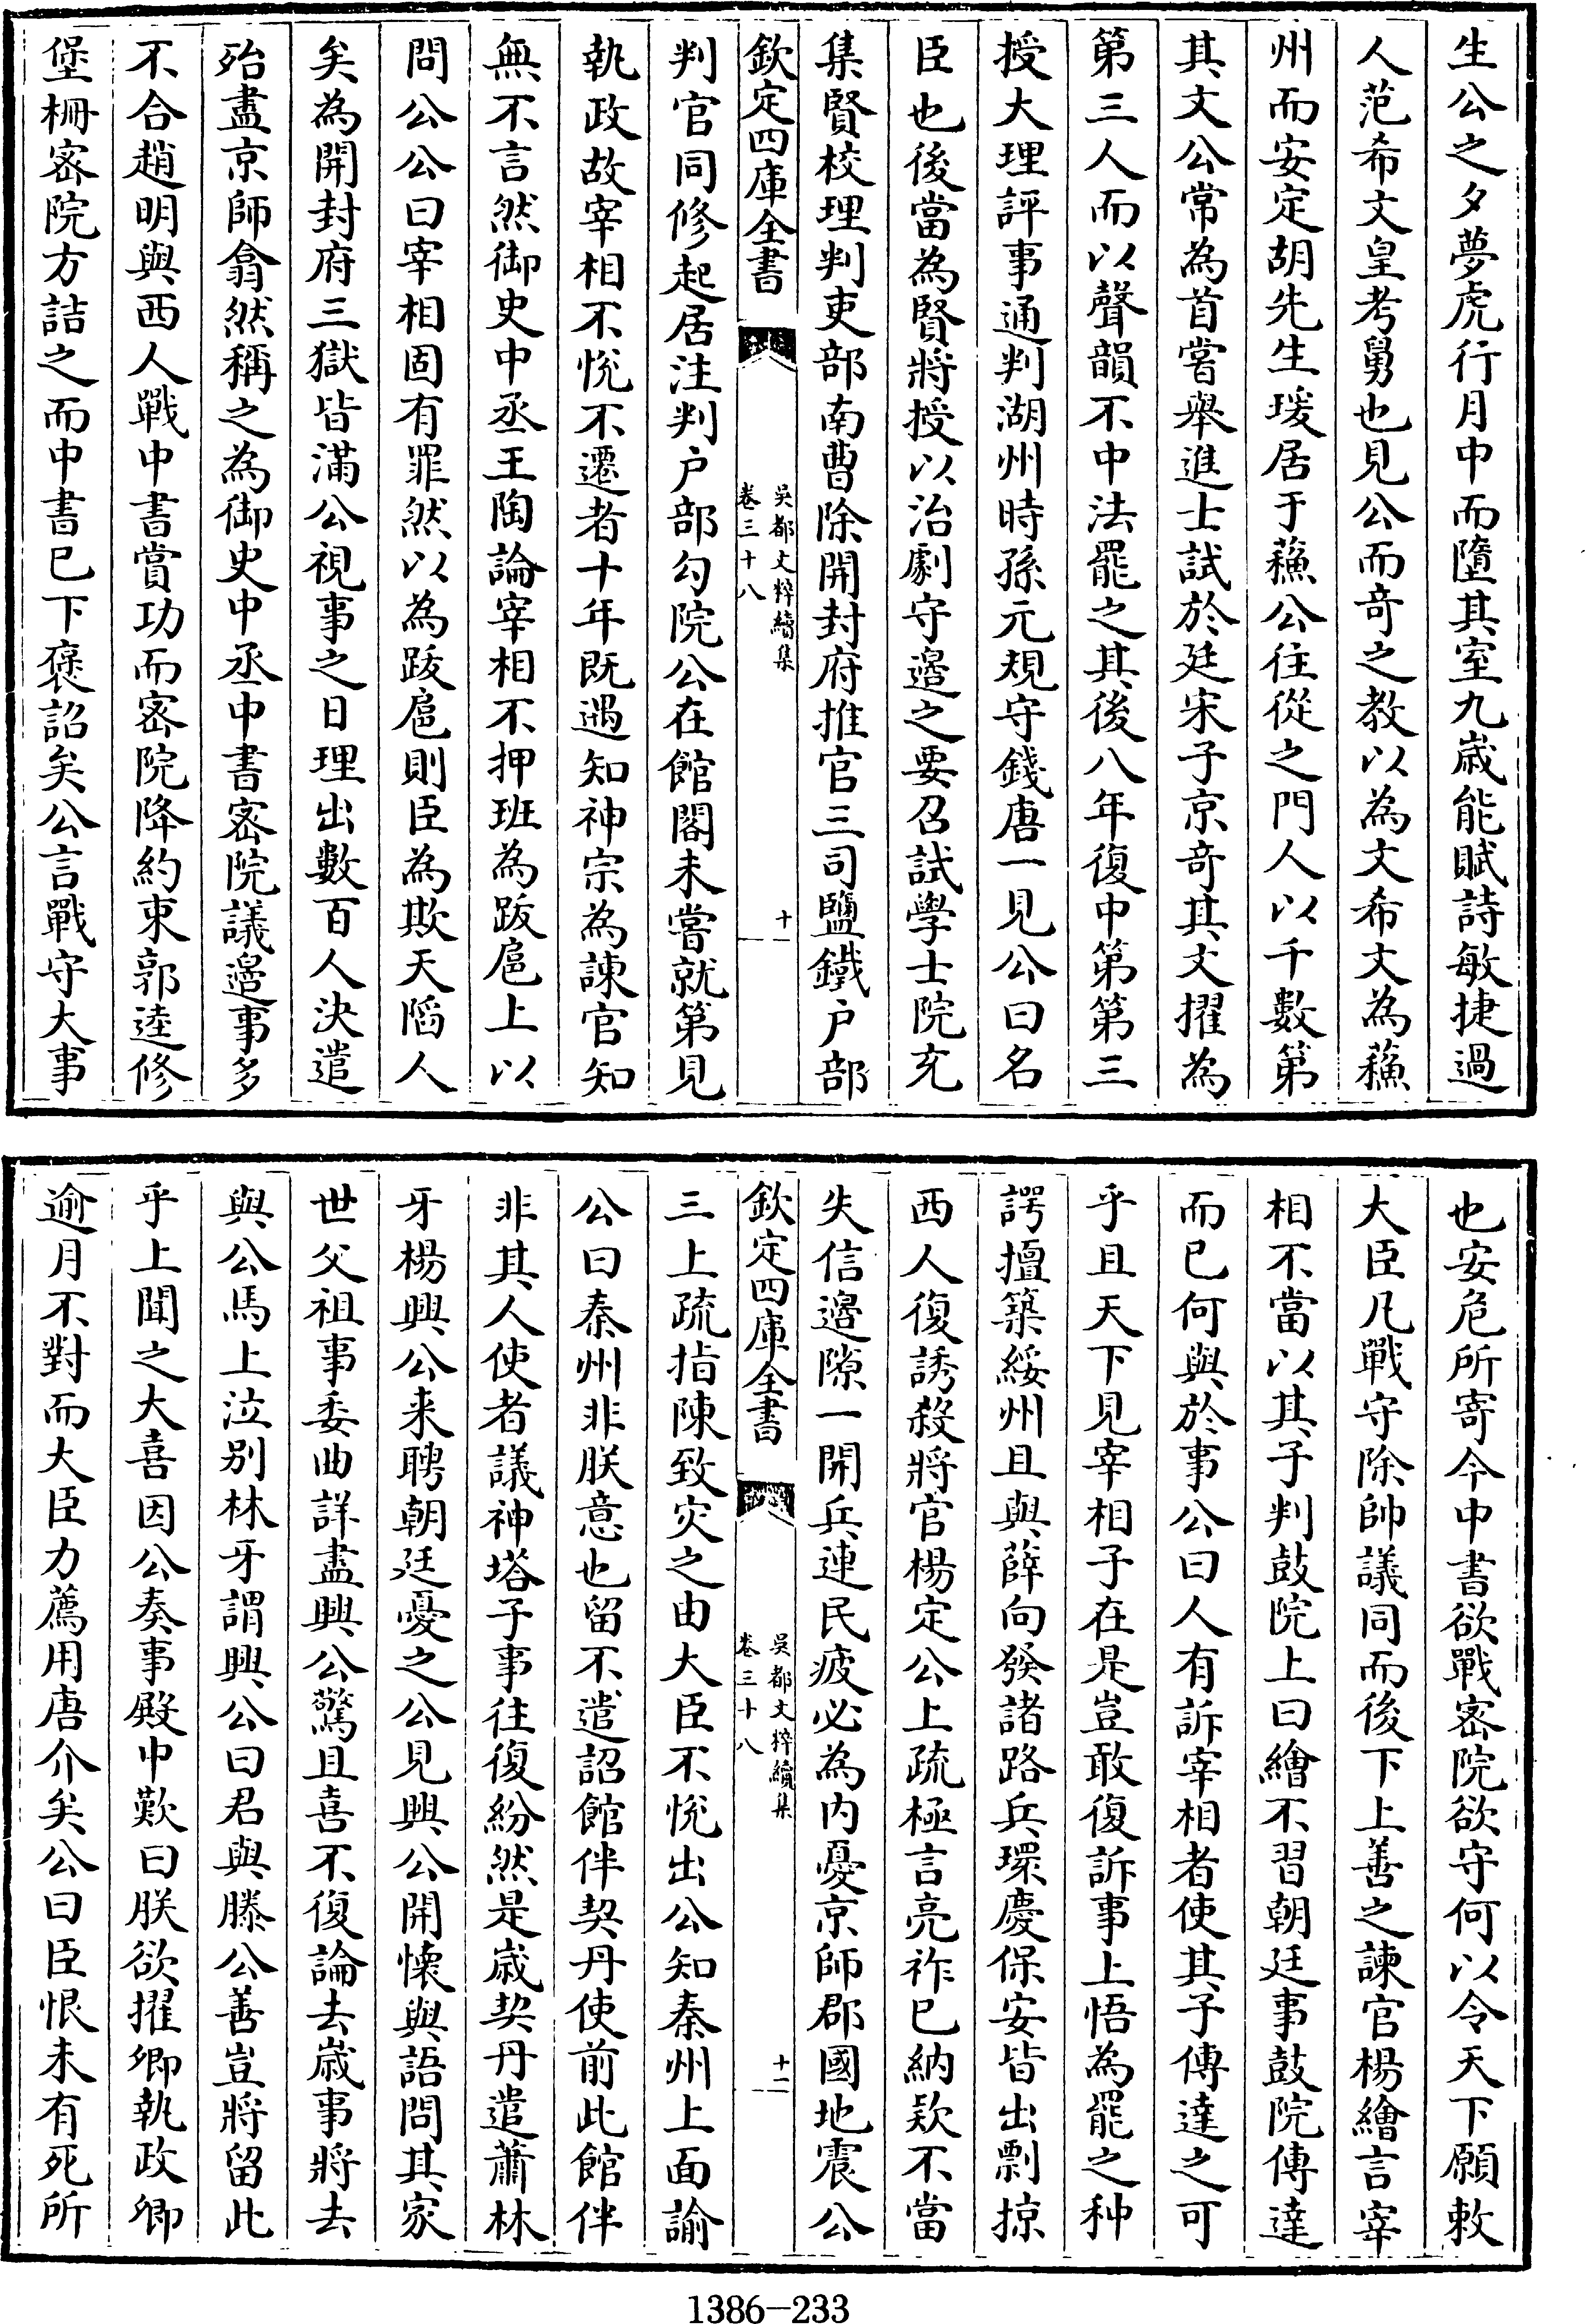 生公之夕夢虎行月中而墮其室九歲能賦詩敏捷過
人范希文皇考舅也見公而奇之教以為文希文為蘓
州而安定胡先生瑗居于蘓公往從之門人以千數第
其文公常為首嘗舉進士試於廷宋子京奇其文擢為
第三人而以聲韻不中法罷之其後八年復中第第三
授大理評事通判湖州時孫元規守錢唐一見公曰名
臣也後當為賢將授以治劇守邉之要召試學士院充
集賢校理判吏部南曹除開封府推官三司鹽鐵户部
欽定四庫全書
吳都文粹續集
卷三十八
十一
判官同修起居注判户部勾院公在館閣未嘗就第見
執政故宰相不悅不遷者十年既遇知神宗為諫官知
無不言然御史中丞王陶論宰相不押班為跋扈上以
問公公曰宰相固有罪然以為跋扈則臣為欺天䧟人
矣為開封府三獄皆滿公視事之日理出數百人決遣
殆盡京師翕然稱之為御史中丞中書宻院議邉事多
不合趙明與西人戰中書賞功而宻院降約束郭逵修
堡柵宻院方詰之而中書已下褒詔矣公言戰守大事
也安危所寄今中書欲戰宻院欲守何以令天下願敕
大臣凡戰守除帥議同而後下上善之諫官楊繪言宰
相不當以其子判鼓院上曰繪不習朝廷事鼓院傳達
而已何與於事公曰人有訴宰相者使其子傳達之可
乎且天下見宰相子在是豈敢復訴事上悟為罷之种
諤擅築綏州且與薛向發諸路兵環慶保安皆出剽掠
西人復誘殺將官楊定公上疏極言亮祚已納欵不當
失信邉隙一開兵連民疲必為内憂京師郡國地震公
欽定四庫全書
吳都文粹續集
卷三十八
十二
三上疏指陳致灾之由大臣不悅出公知秦州上面諭
公曰秦州非朕意也留不遣詔館伴契丹使前此館伴
非其人使者議神塔子事往復紛然是歲契丹遣蕭林
牙楊興公来聘朝廷憂之公見興公開懐與語問其家
世父祖事委曲詳盡興公驚且喜不復論去歲事將去
與公馬上泣别林牙謂興公曰君與滕公善豈將留此
乎上聞之大喜因公奏事殿中歎曰朕欲擢卿執政卿
逾月不對而大臣力薦用唐介矣公曰臣恨未有死所
1386-233